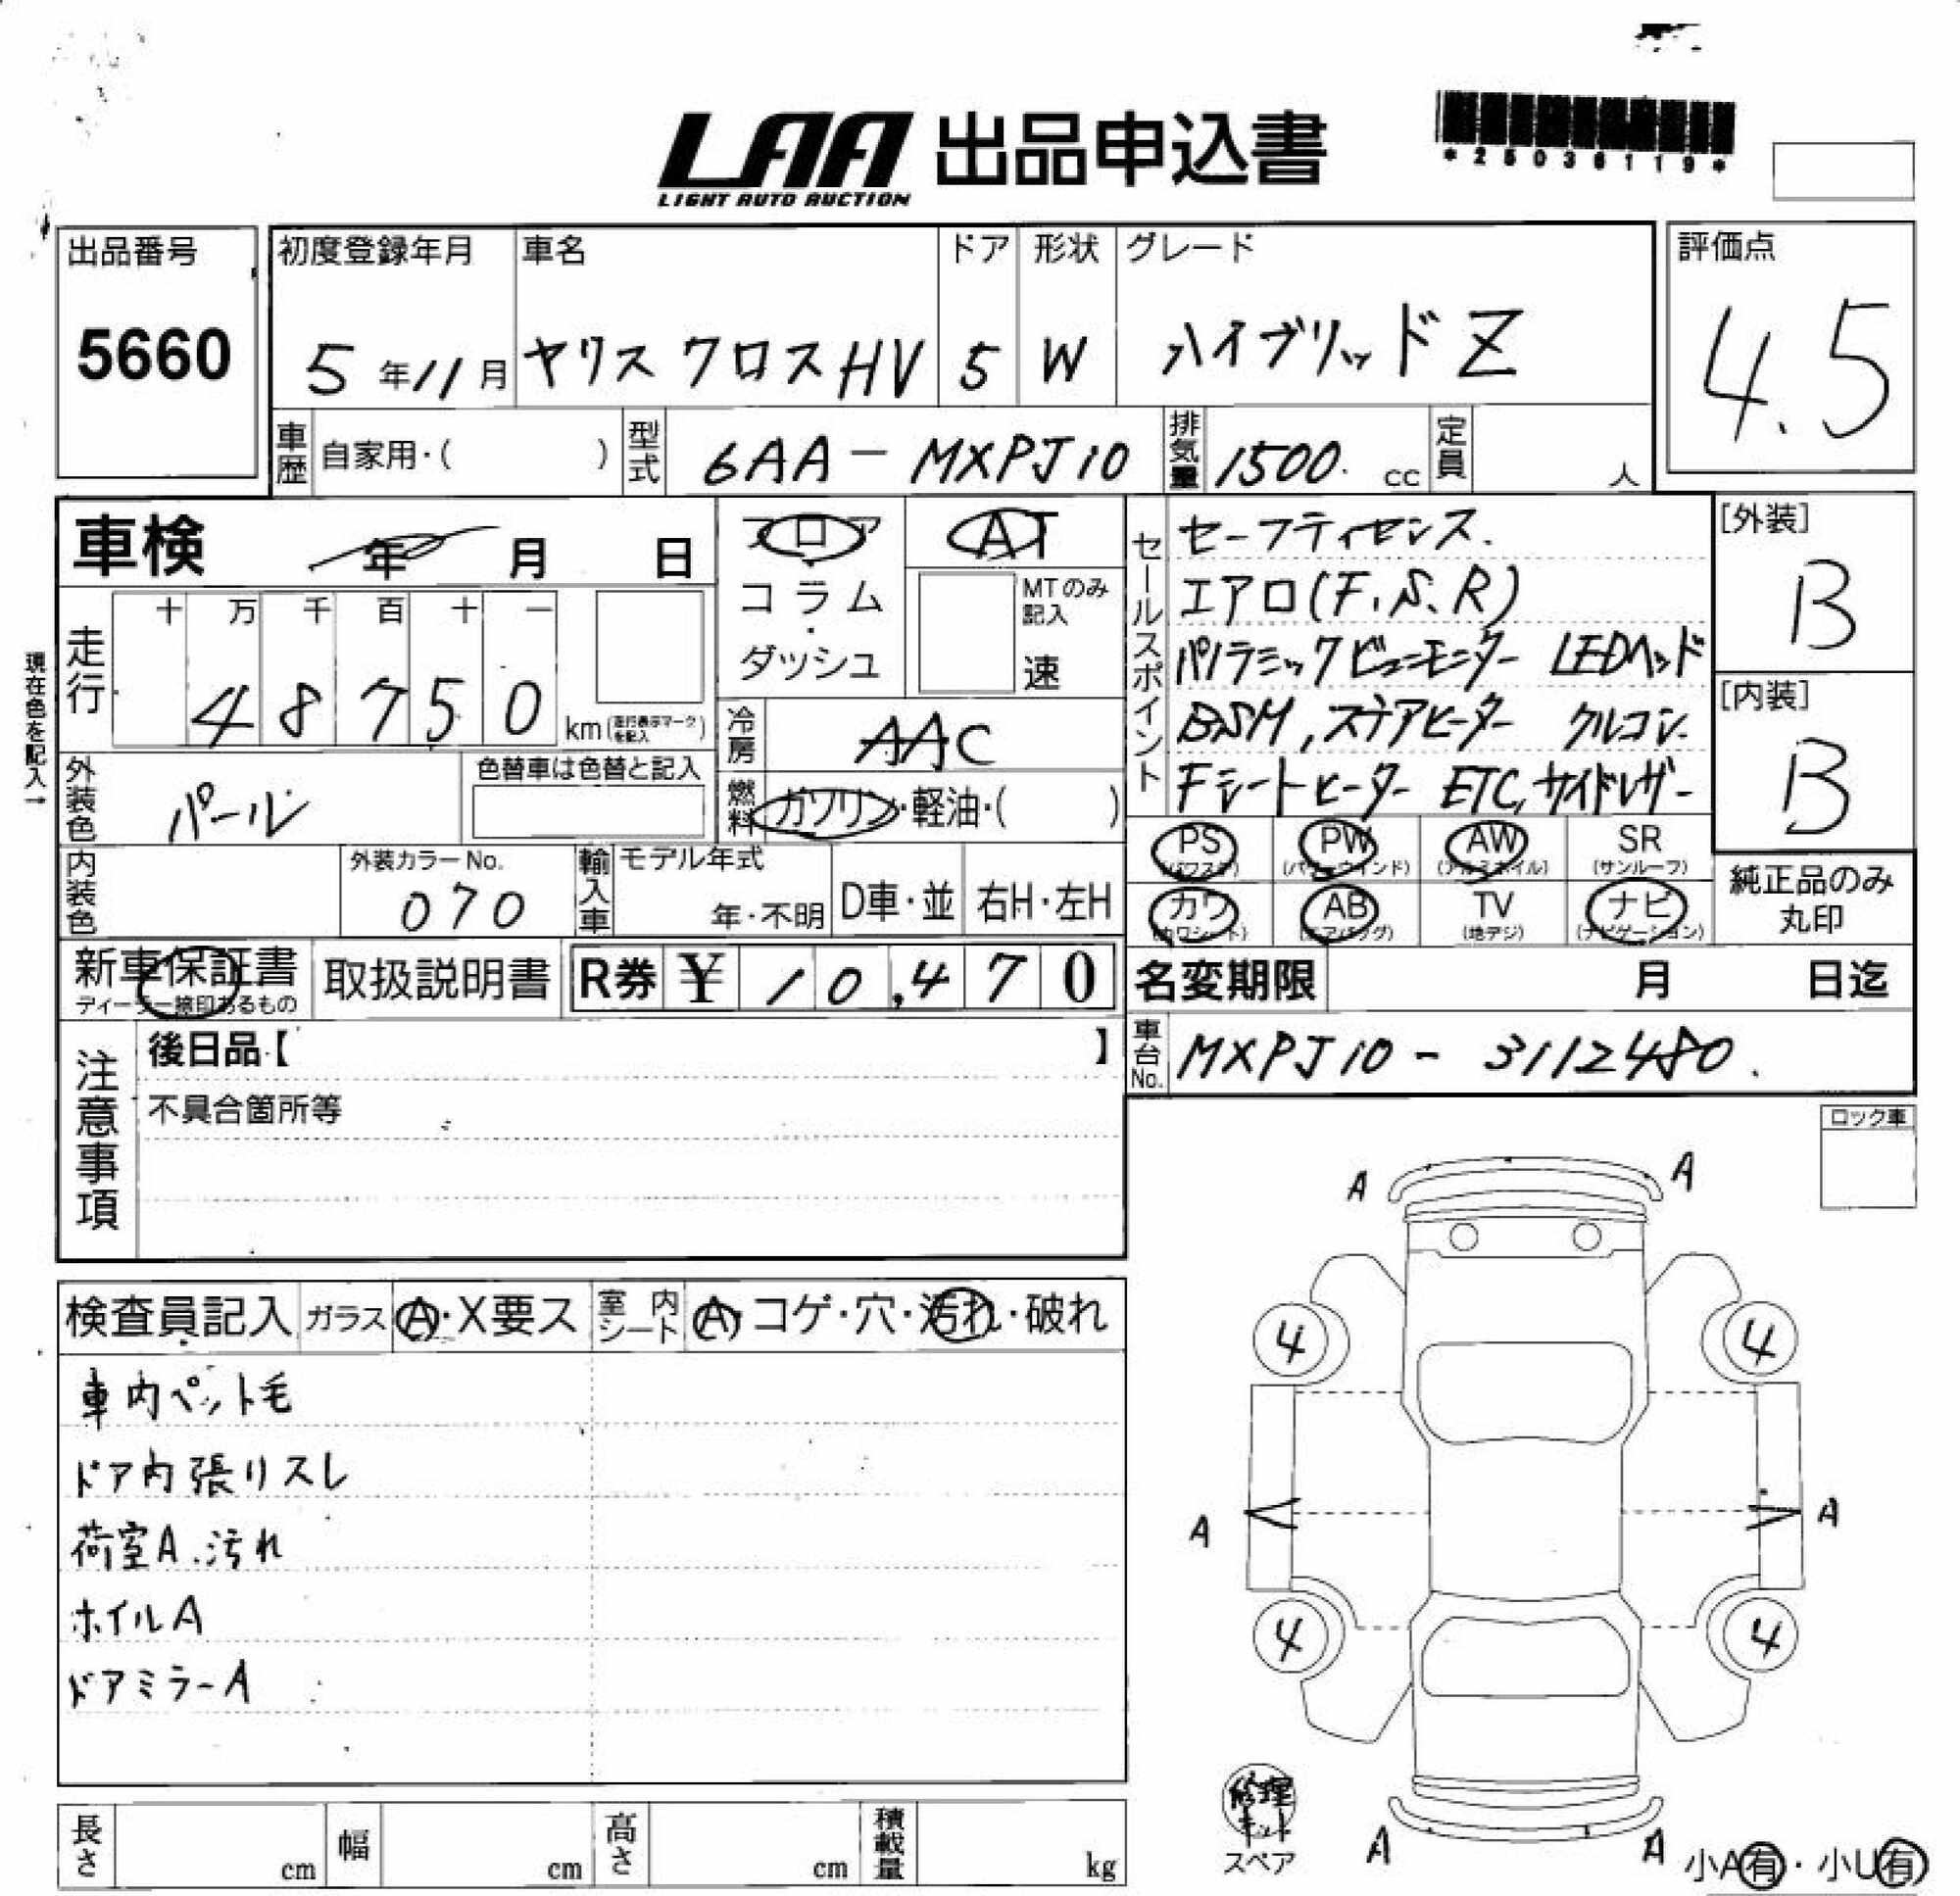 LAA 出品申込書
LIGHT AUTO AUCTION
*25036119*
出品番号
5660
初度登録年月
5年11月
車名
ヤリスクロスHV
ドア
5
形状
W
グレード
ハイブリッドZ
評価点
4.5
車歴
自家用・( )
型式
6AA-MXPJ10
排気量
1500. cc
定員
人
車検 年 月 日
フロア
コラム
・
ダッシュ
AT
MTのみ記入
速
セールスポイント
セーフティセンス.
エアロ(F、S、R)
パノラミックビューモニター LEDヘッド
BSM,ステアヒーター クルコン.
Fシートヒーター ETC,サイドレザー
[外装]
B
[内装]
B
現在色を記入→
走行
十 万 千 百 十 一
4 8 7 5 0 km(走行表示マークを記入)
冷房
AAC
外装色
パール
色替車は色替と記入
燃料
ガソリン・軽油・( )
PS (パワステ)
PW (パワーウインド)
AW (アルミホイル)
SR (サンルーフ)
カワ (カワシート)
AB (エアバッグ)
TV (地デジ)
ナビ (ナビゲーション)
純正品のみ
丸印
内装色
外装カラーNo.
070
輸入車
モデル年式
年・不明
D車・並
右H・左H
新車保証書
ディーラー捺印あるもの
取扱説明書
R券 ¥ 10,470
名変期限 月 日迄
車台No.
MXPJ10-3112480.
注意事項
後日品【 】
不具合箇所等
ロック車
検査員記入
ガラス A・X要ス
室内シート A・コゲ・穴・汚れ・破れ
車内ペット毛
ドア内張りスレ
荷室A.汚れ
ホイルA
ドアミラーA
A A
4 4
A A
4 4
修理キット
スペア
A A
小A有・小U有
長さ cm
幅 cm
高さ cm
積載量 kg